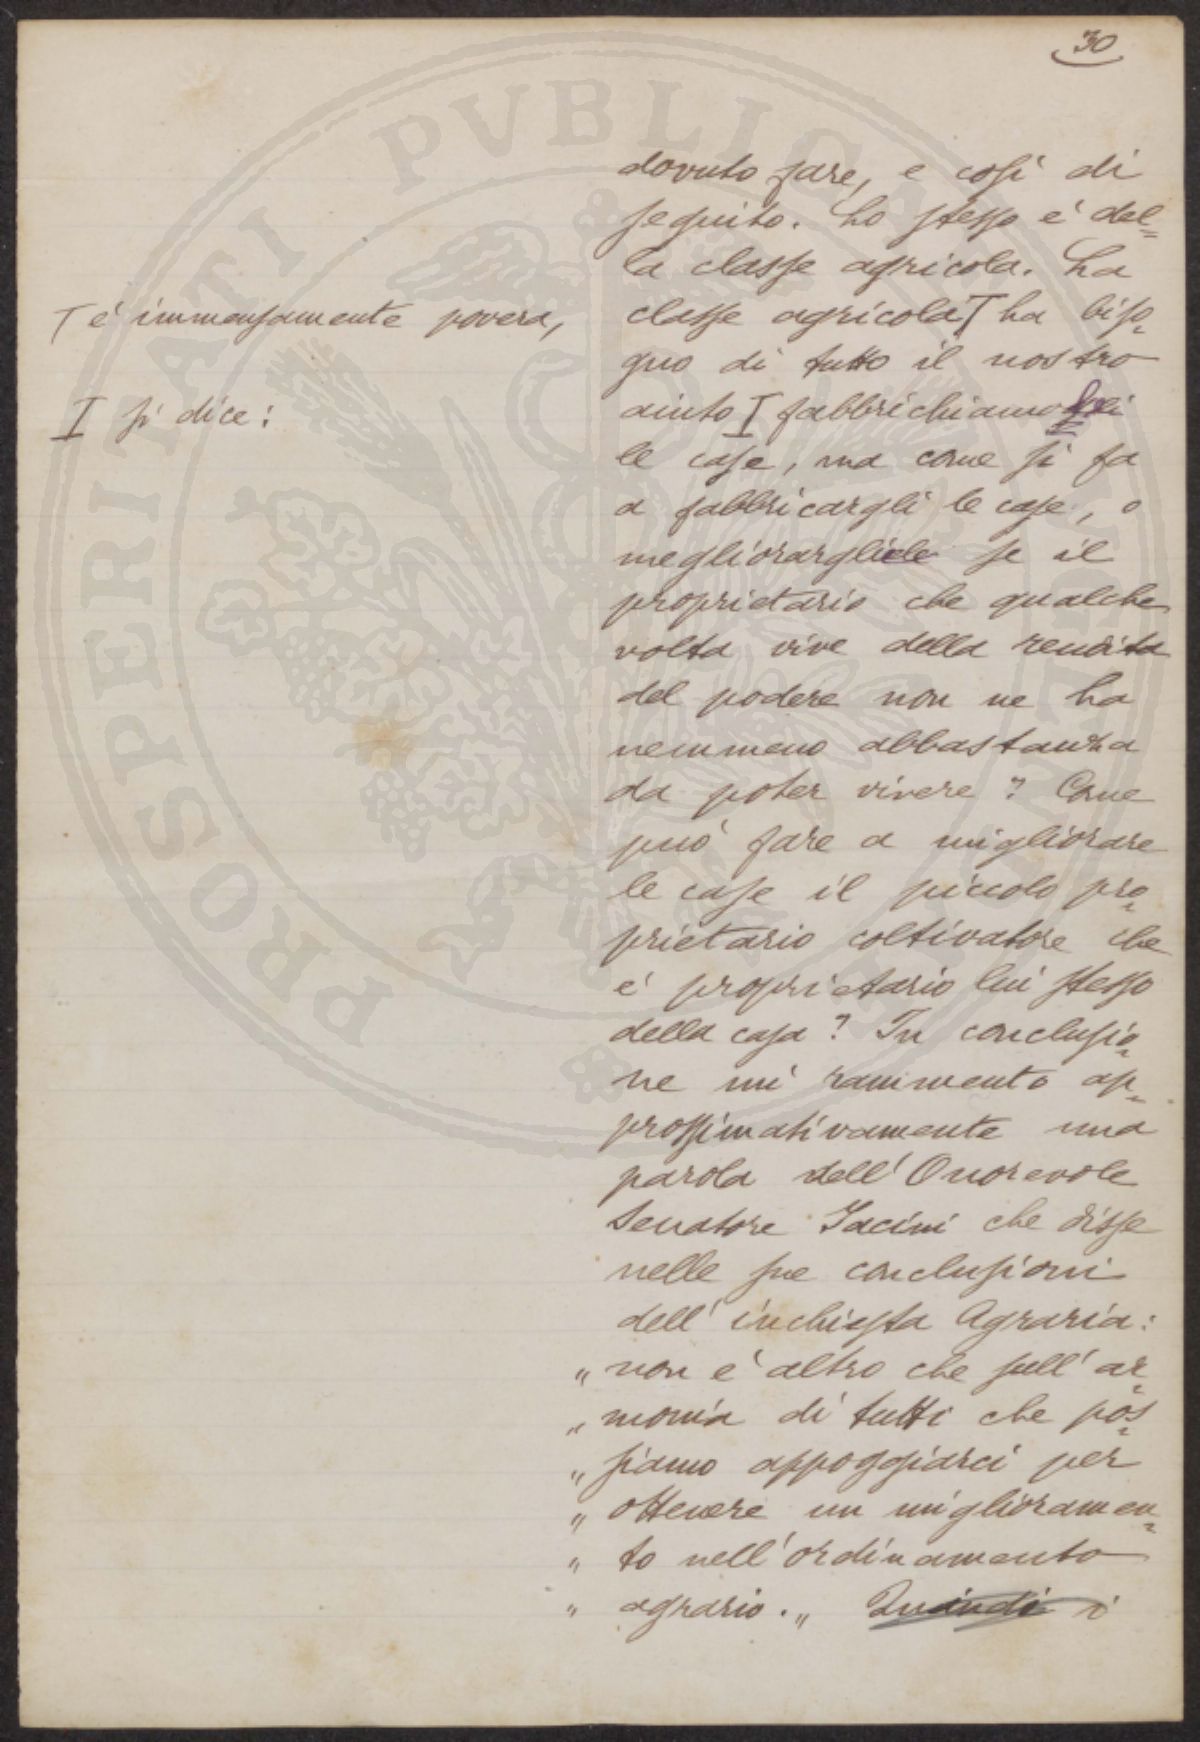 30
dovuto fare, e così di
seguito. Lo stesso é del=
la classe agricola. La
T é immensamente povera,
classe agricola T ha biso=
gno di tutto il nostro
I si dice:
aiuto I fabbrichiamogli
le case, ma come si fa
a fabbricargli le case, o
megliorargliele se il
proprietario che qualche
volta vive della rendita
del podere non ne ha
nemmeno abbastanza
da poter vivere? Come
può fare a migliorare
le case il piccolo pro=
prietario coltivatore che
é proprietario lui stesso
della casa? In conclusio=
ne mi rammento ap=
prossimativamente una
parola dell'Onorevole
Senatore Jacini che disse
nelle sue conclusioni
dell'inchiesta Agraria:
„ non é altro che sull'ar=
„ monia di tutti che pos=
„ siamo appoggiarci per
„ ottenere un miglioramen=
„ to nell'ordinamento
„ agrario. „ Quindi i
PROSPERITATI PVBLICAE